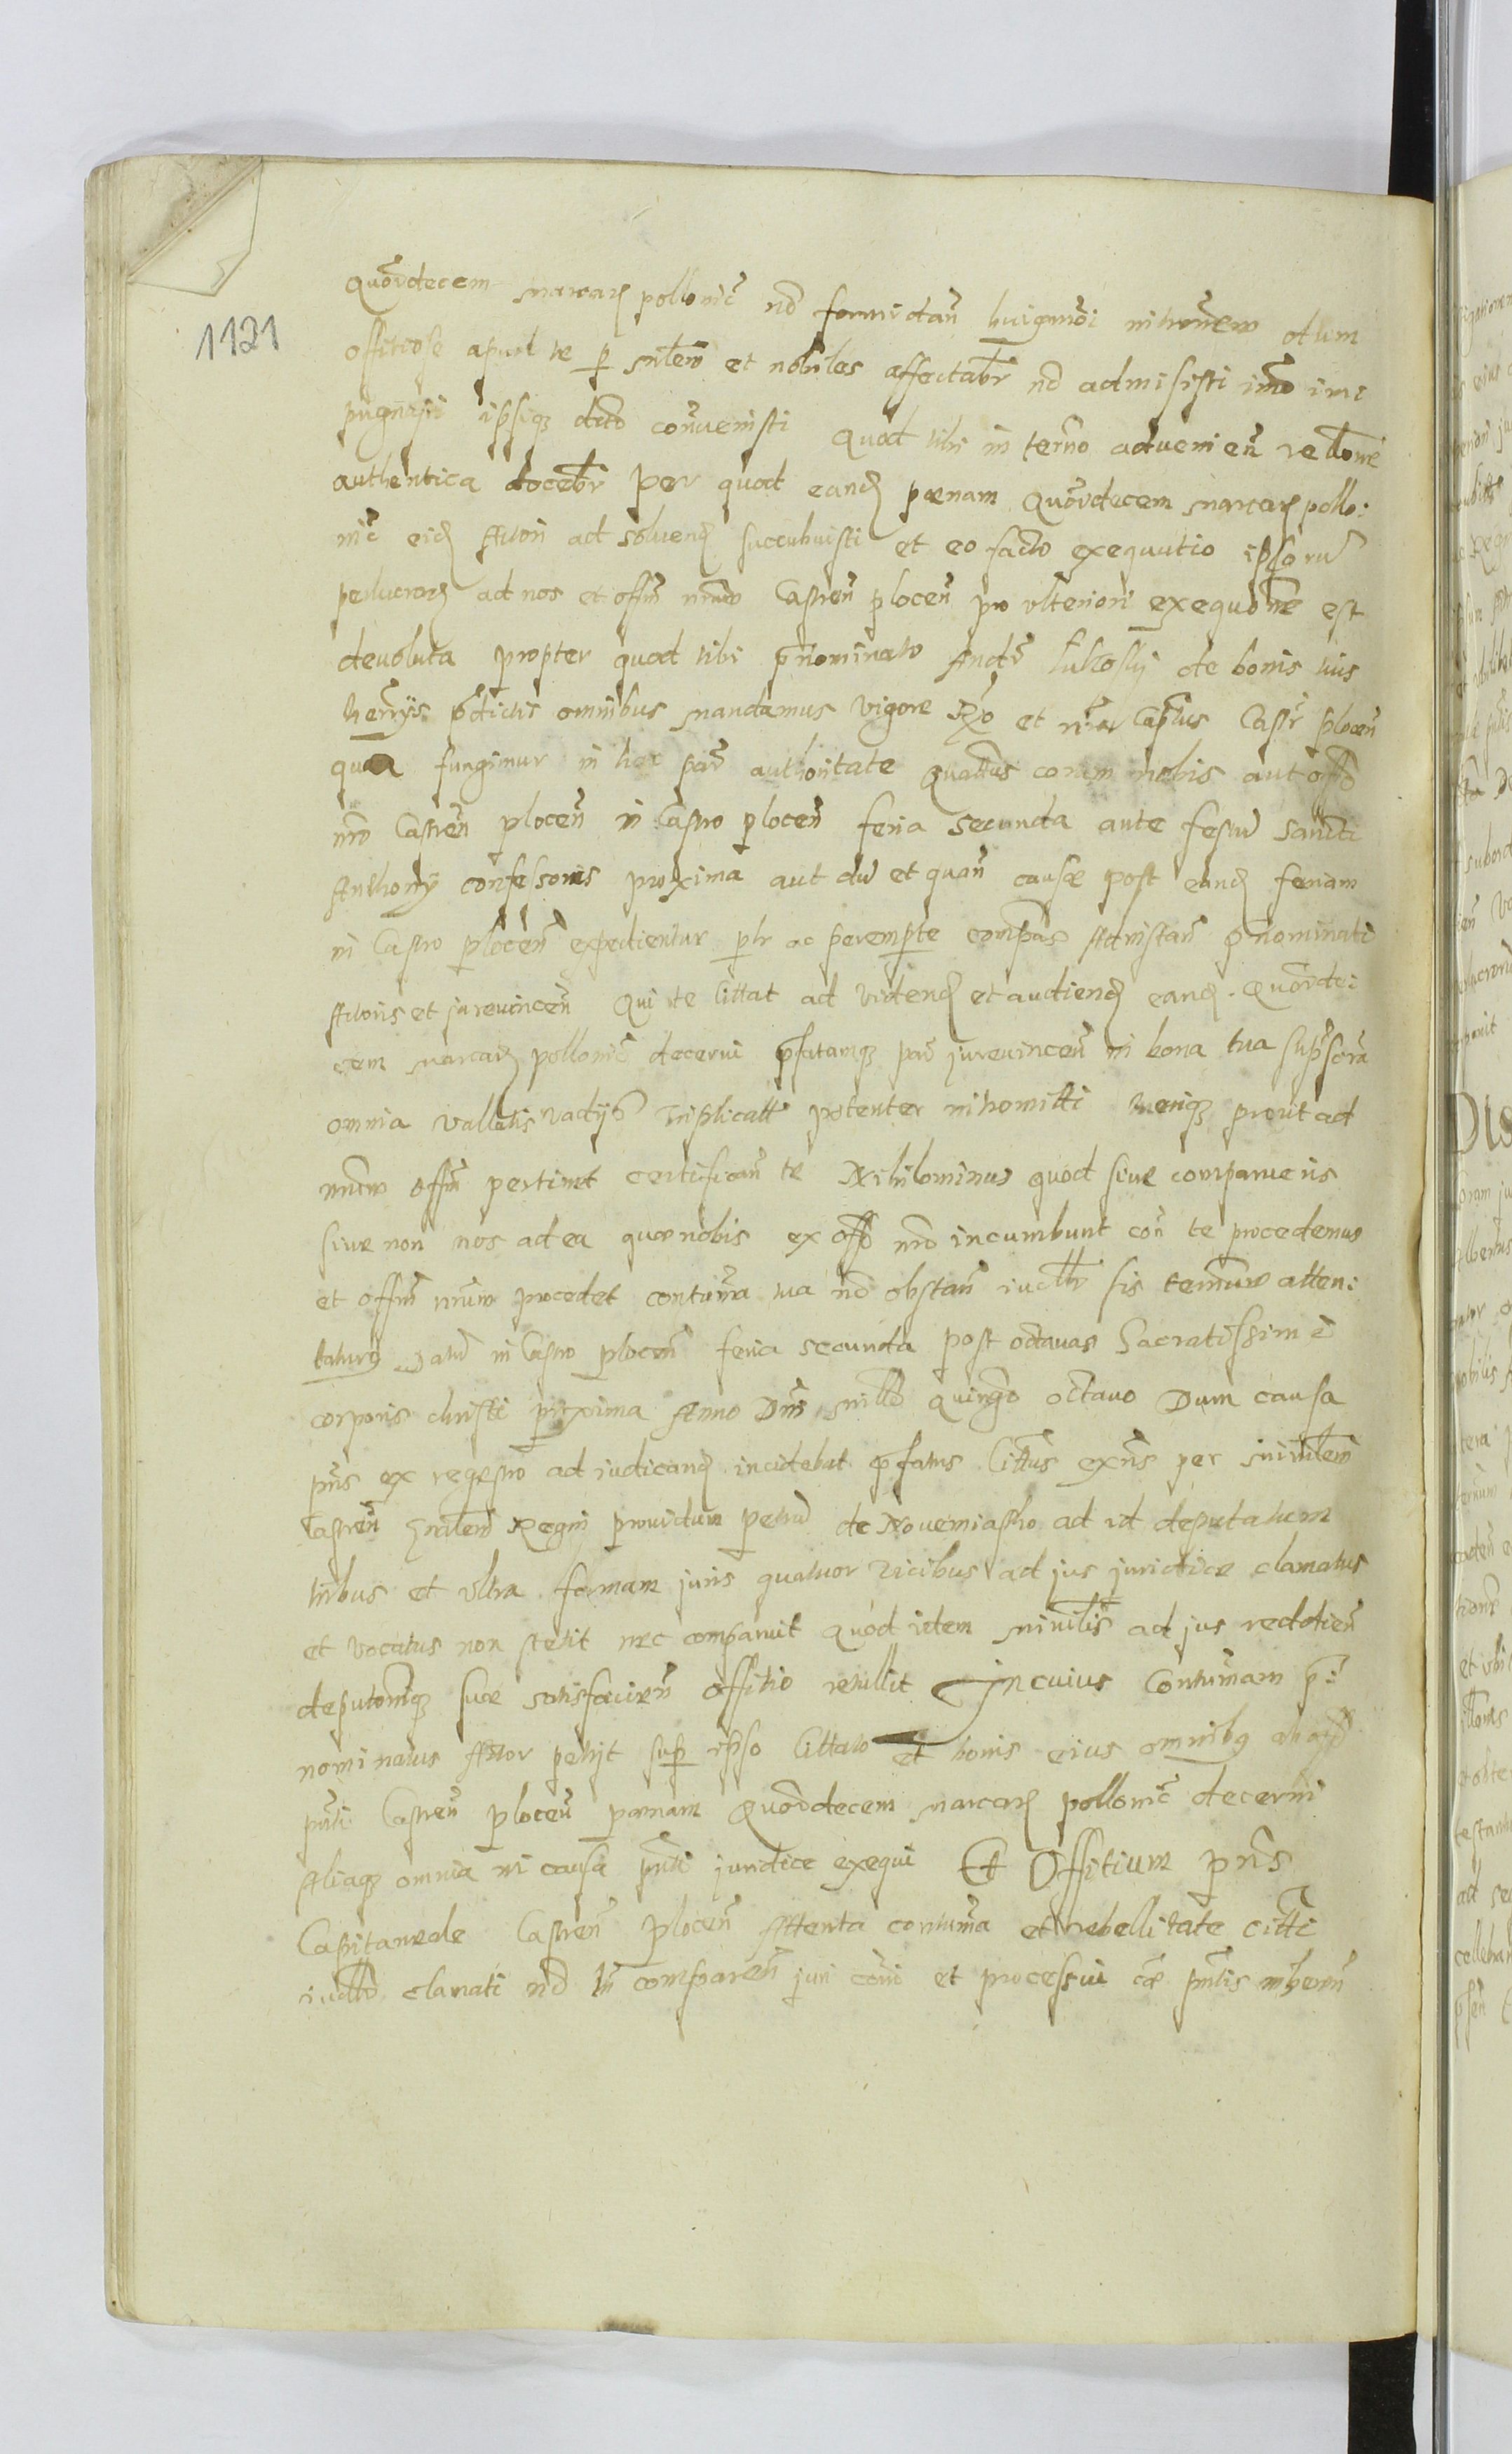 1121
quordecem marcar pollonic no formidan huigmoi intronem dum
offitiose apud te p mrlem et nobiles affectabr no admisisti imo im:
pugnasti ipsiq dicto convenisti quod tibi in termo advenien rellone
authentica docebr Per quod eand pœnam quordecem marcar pollo:
nic eid Actori ad solvend succubuisti et eo facto exequutio ipsoru
perlucror ad nos et offm nrum Castren plocen pro ulteriori exequone est
devoluta propter quod tibi pnominato de bonis tuis
herrijs pdictis omnibus mandamus vigore Rgo et nra Captus Castr plocen
qua fungimur in hac par authoritate quattus coram nobis aut offo
nro Castren plocen in Castro plocen feria secunda ante festu sancti
Anthonij confessoris proxima aut du et quan causæ post eand feriam
in Castro plocen expedientur plr ac perempte compas Ad instan pnominati
Actoris et jurevincen Qui te Cittat ad videnđ et audienđ eand quorde:
cem marcar pollonic decerni pfatamq par jurevincen in bona tua supscra
omnia vallatis vadijs triplicatt potenter intromitti tueriq prout ad
nrum offm pertinet certifican te Nihilominus quod sive comparueris
sive non nos ad ea quæ nobis ex offo nro incumbunt con te procedemus
et offm nrum procedet contuma tua no obstan iudllr sis termum atten:
taturq Datu in Castro plocen feria secunda post octavas Sacratissimi
corporis christi proxima Anno Dni millo quingo octavo Dum causa
pns ex regestro ad iudicanđ incidebat pfatus Cittus exns per ministlem
Castren gnalem Regni providum petru de Novemiastho ad id deputatum
tribus et ultra formam juris quatuor vicibus ad jus juridice clamatus
et vocatus non stetit nec comparuit quod idem ministlis ad jus reddien
deputoniq suæ satisfacien offitio retullit In cuius Contumam p:
nominatus Actor petijt sup ipso Cittato et bonis eius omnibq
pnti Castren plocen pœnam Quordecem marcar pollonic decerni
Aliaq omnia in causa pnti juridice exequi Et Offitium pns
Capitaneale Castren Plocen Attenta contuma et rebellitate citti
iudllr clamati no tn comparen juri coni et processui cæ pntis inheren